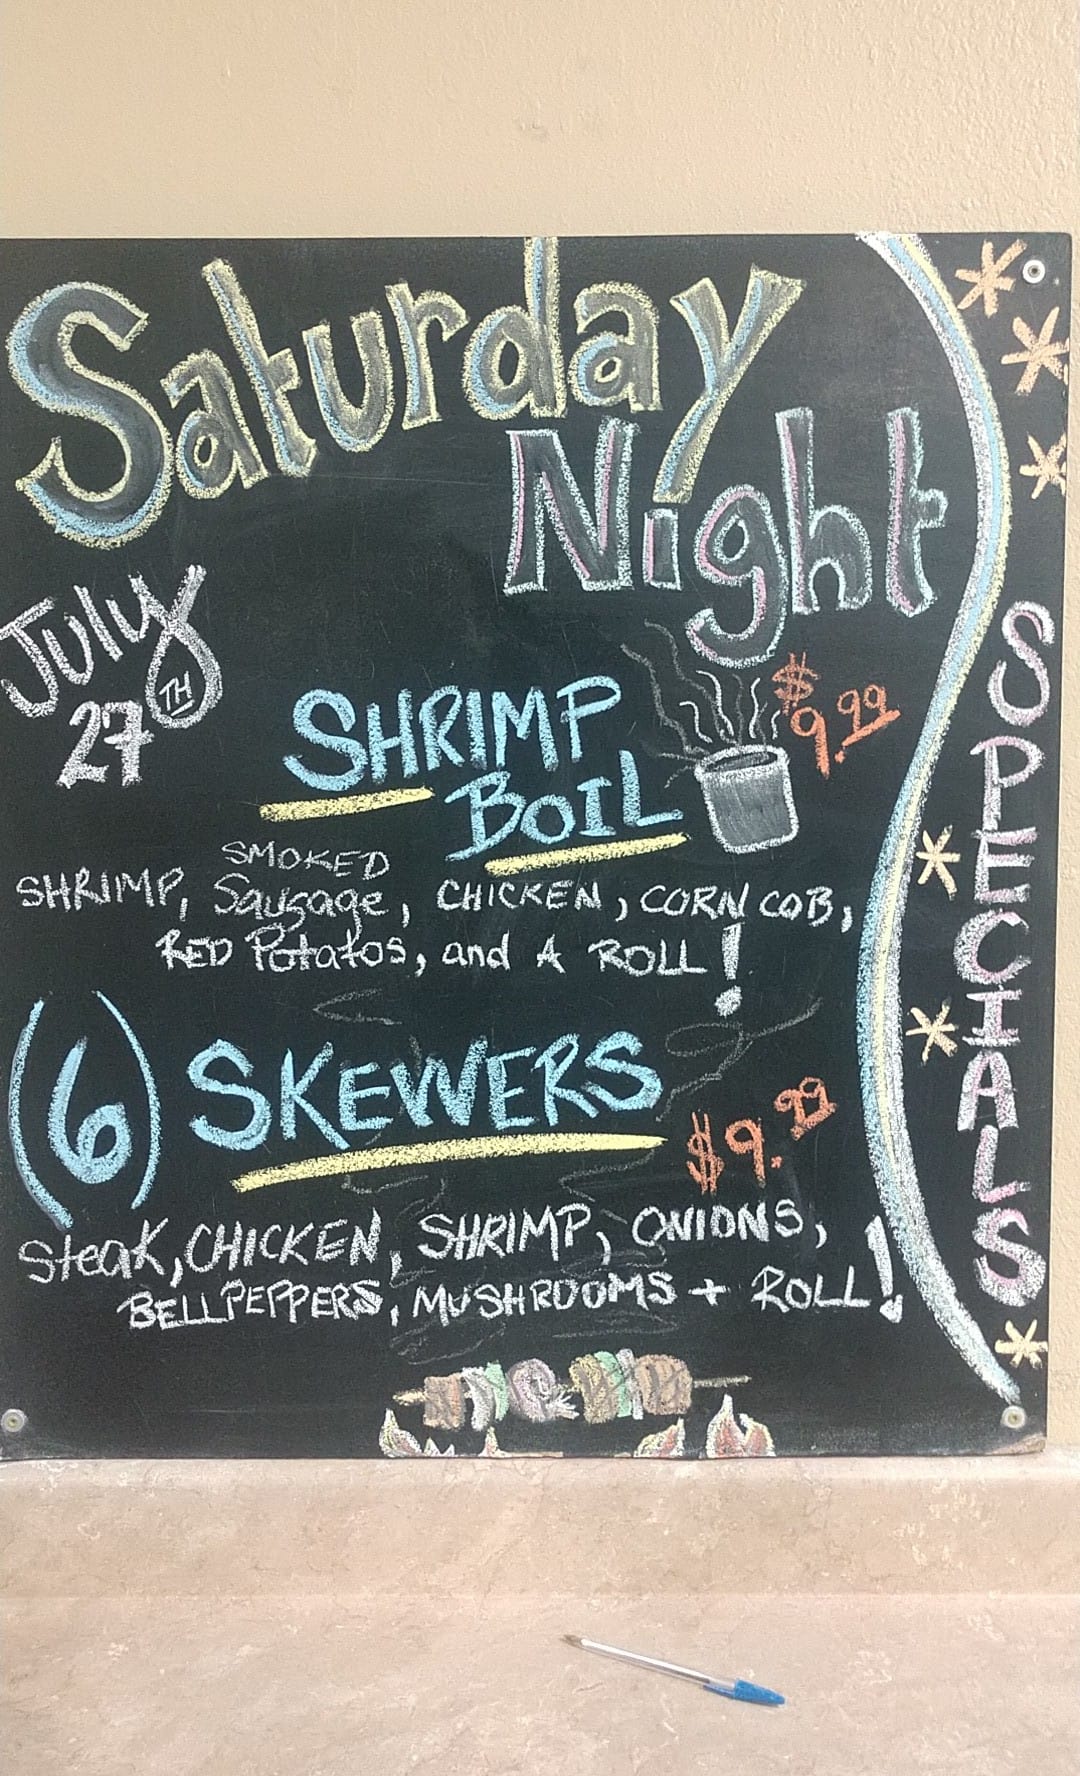 Saturday
Night
July
27TH
SPECIALS
SHRIMP
BOIL
$9.99
SMOKED
SHRIMP, Sausage, CHICKEN, CORN COB,
RED Potatos, and A ROLL!
(6) SKEWERS
$9.99
Steak, CHICKEN, SHRIMP, ONIONS,
BELLPEPPERS, MUSHROOMS + ROLL!